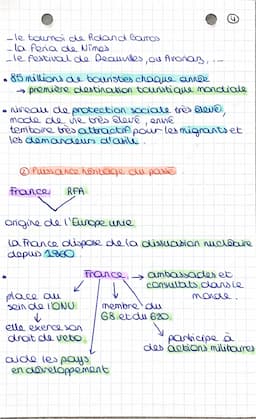 4
- le tournoi de Roland Garros
- la Feria de Nîmes
- le festival de Deauville, ou Avoriaz, ...
• 85 millions de touristes chaque année
→ première destination touristique mondiale
• niveau de protection sociale très élevé,
mode de vie très élevé,
territoire très attractif pour les migrants et
les demandeurs d'asile.
② Puissance héritage du passé
France RFA
origine de l'Europe unie
La France dispose de la dissuasion nucléaire
depuis 1960
• France → ambassades et
consulats dans le
monde.
place au
sein de l'ONU
membre du
G8 et du G20
elle exerce son
droit de veto
participe à
des actions militaires
aide les pays
en développement